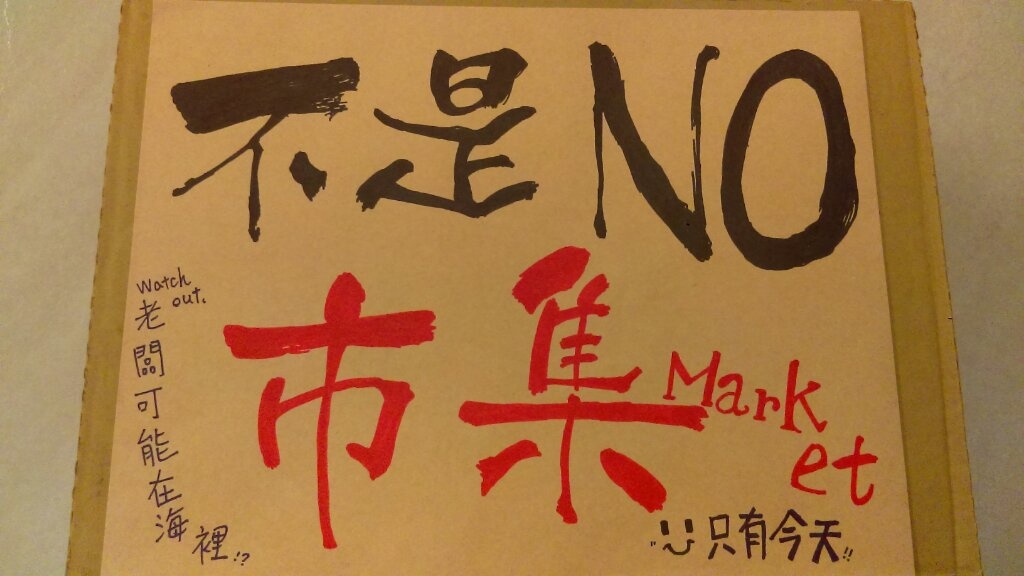 不是NO
市集Market
Watch out.
老闆可能在海裡!?
只有今天!!